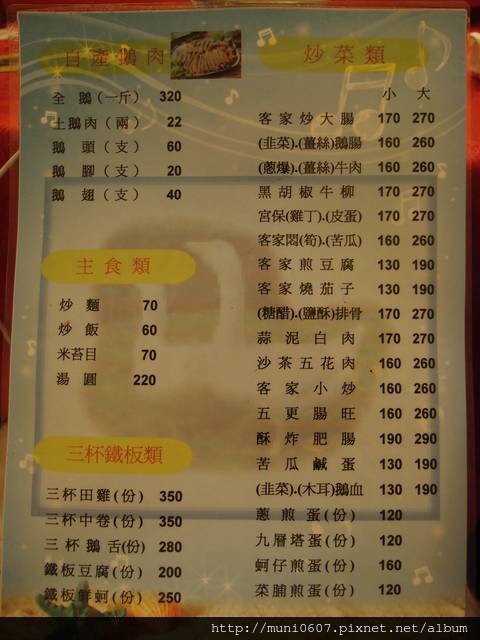 自產鵝肉
全鵝(一斤) 320
土鵝肉(兩) 22
鵝頭(支) 60
鵝腳(支) 20
鵝翅(支) 40
主食類
炒麵 70
炒飯 60
米苔目 70
湯圓 220
三杯鐵板類
三杯田雞(份) 350
三杯中卷(份) 350
三杯鵝舌(份) 280
鐵板豆腐(份) 200
鐵板鮮蚵(份) 250
炒菜類
小 大
客家炒大腸 170 270
(韭菜).(薑絲)鵝腸 160 260
(蔥爆).(薑絲)牛肉 160 260
黑胡椒牛柳 170 270
宮保(雞丁).(皮蛋) 170 270
客家悶(筍).(苦瓜) 160 260
客家煎豆腐 130 190
客家燒茄子 130 190
(糖醋).(鹽酥)排骨 170 270
蒜泥白肉 170 270
沙茶五花肉 160 260
客家小炒 160 260
五更腸旺 160 260
酥炸肥腸 190 290
苦瓜鹹蛋 130 190
(韭菜).(木耳)鵝血 130 190
蔥煎蛋(份) 120
九層塔蛋(份) 120
蚵仔煎蛋(份) 160
菜脯煎蛋(份) 120
http://muni0607.pixnet.net/album